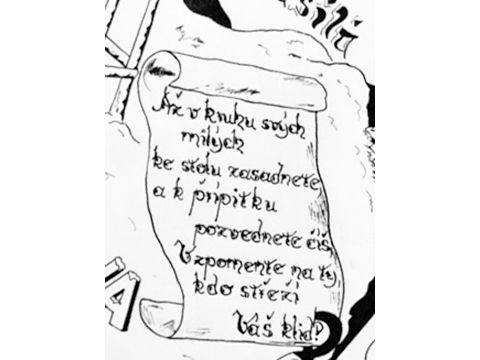 Až v kruhu svých
milých
ke stolu zasednete
a k přípitku
pozvednete číš
Vzpomeňte na ty
kdo střeží
Váš klid!